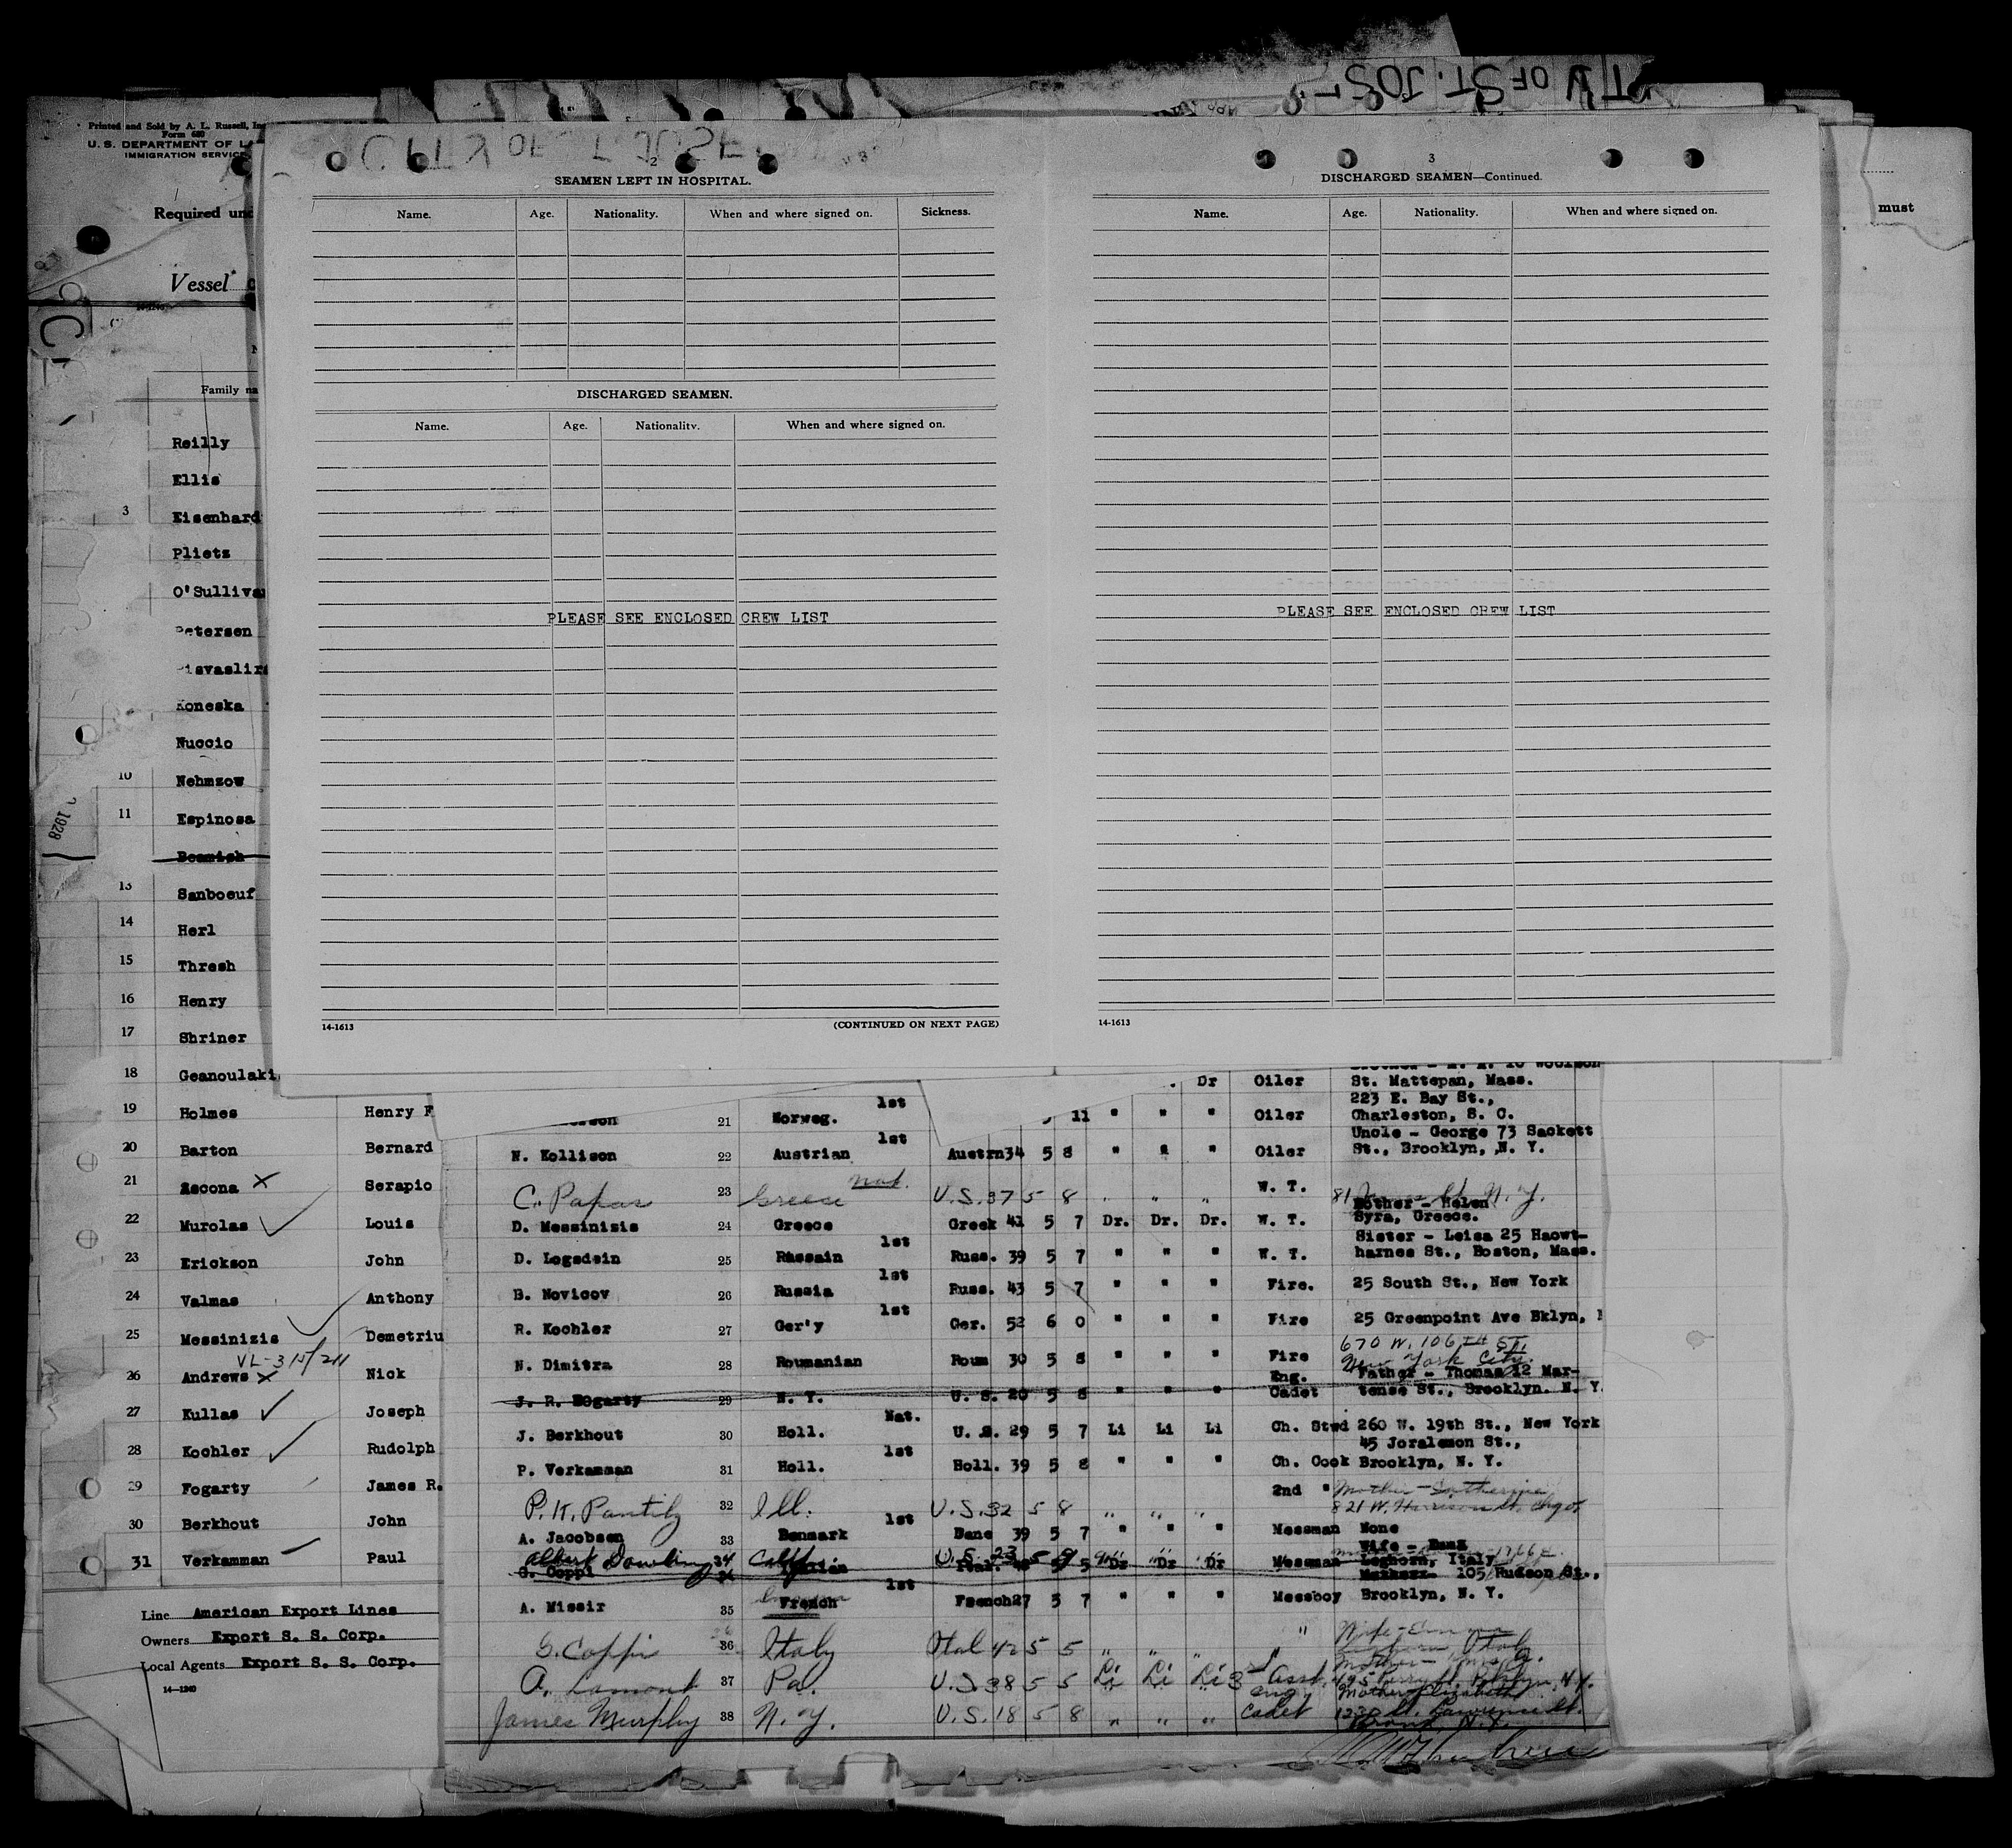 TY OF ST. JOS
Printed and Sold by A. L. Russell, Inc
Form 680
U. S. DEPARTMENT OF LA
IMMIGRATION SERVICE
Required und
must
Vessel
Family na
Reilly
Ellis
3 Eisenhard
Plietz
O'Sulliva
Petersen
Koneska
Nuccio
10 Nehmzow
11 Espinosa
1928
Beamish
13 Sanboeuf
14 Herl
15 Thresh
16 Henry
17 Shriner
18 Geanoulaki
19 Holmes Henry F
20 Barton Bernard
21 Ascona X Serapio
22 Murolas Louis
23 Erickson John
24 Valmas Anthony
25 Messinizis Demetriu
VL-315/211
26 Andrews X Nick
27 Kullas Joseph
28 Kochler Rudolph
29 Fogarty James R.
30 Berkhout John
31 Verkamman Paul
Line American Export Lines
Owners Export S. S. Corp.
Local Agents Export S. S. Corp.
14-1240
2
SEAMEN LEFT IN HOSPITAL.
Name. Age. Nationality. When and where signed on. Sickness.
DISCHARGED SEAMEN.
Name. Age. Nationality. When and where signed on.
PLEASE SEE ENCLOSED CREW LIST
14-1613 (CONTINUED ON NEXT PAGE)
3
DISCHARGED SEAMEN—Continued.
Name. Age. Nationality. When and where signed on.
PLEASE SEE ENCLOSED CREW LIST
14-1613
Dr Oiler St. Mattepan, Mass.
1st 223 E. Bay St.,
21 Norweg. 11 " " " Oiler Charleston, S. C.
1st Uncle - George 73 Sackett
N. Kollison 22 Austrian Austrn 34 5 8 " " " Oiler St., Brooklyn, N. Y.
Nat.
C. Papas 23 Greece U.S. 37 5 8 " " " W. T. 81 St. N. Y.
Mother - Helen
D. Messinizis 24 Greece Greek 41 5 7 Dr. Dr. Dr. W. T. Syra, Greece.
1st Sister - Leisa 25 Haowt-
D. Logsdein 25 Russain Russ. 39 5 7 " " " W. T. harnes St., Boston, Mass.
1st
B. Novicov 26 Russia Russ. 43 5 7 " " " Fire. 25 South St., New York
1st
R. Kochler 27 Ger'y Ger. 52 6 0 " " " Fire 25 Greenpoint Ave Bklyn,
670 W. 106TH ST.
N. Dimitra 28 Roumanian Roum 30 5 8 " " " Fire New York City.
Eng. Father - Thomas 12 Mar-
J. R. Fogarty 29 N. Y. U. S. 20 5 8 " " " Cadet tense St., Brooklyn. N. Y.
Nat.
J. Berkhout 30 Holl. U. S. 29 5 7 Li Li Li Ch. Stwd 260 W. 19th St., New York
1st 45 Joralemon St.,
P. Verkamman 31 Holl. Holl. 39 5 8 " " " Ch. Cook Brooklyn, N. Y.
2nd " Mother - Catherine
P. K. Pantily 32 Ill. U.S. 32 5 8 " " " 821 W. Harrison St. Chgo.
1st
A. Jacobsen 33 Denmark Dane 39 5 7 " " " Messman None
Albert Dowling 34 Calif U.S. 23 5 9
Wife -
G. Coppi 34 Italian Ital. 5 5 Dr Dr Dr Messman Leghorn, Italy
1st 105 Hudson St.,
A. Missir 35 French French 27 5 7 " " " Messboy Brooklyn, N. Y.
G. Coppi 36 Italy Ital 42 5 5 " " " " Wife - Emma
Italy
A. Lamont 37 Pa. U.S 38 5 5 Li Li Li 3rd Asst. eng. Bklyn, N.Y.
Mother Elizabeth
James Murphy 38 N. Y. U.S. 18 5 8 " " " Cadet St.
Bronx, N.Y.